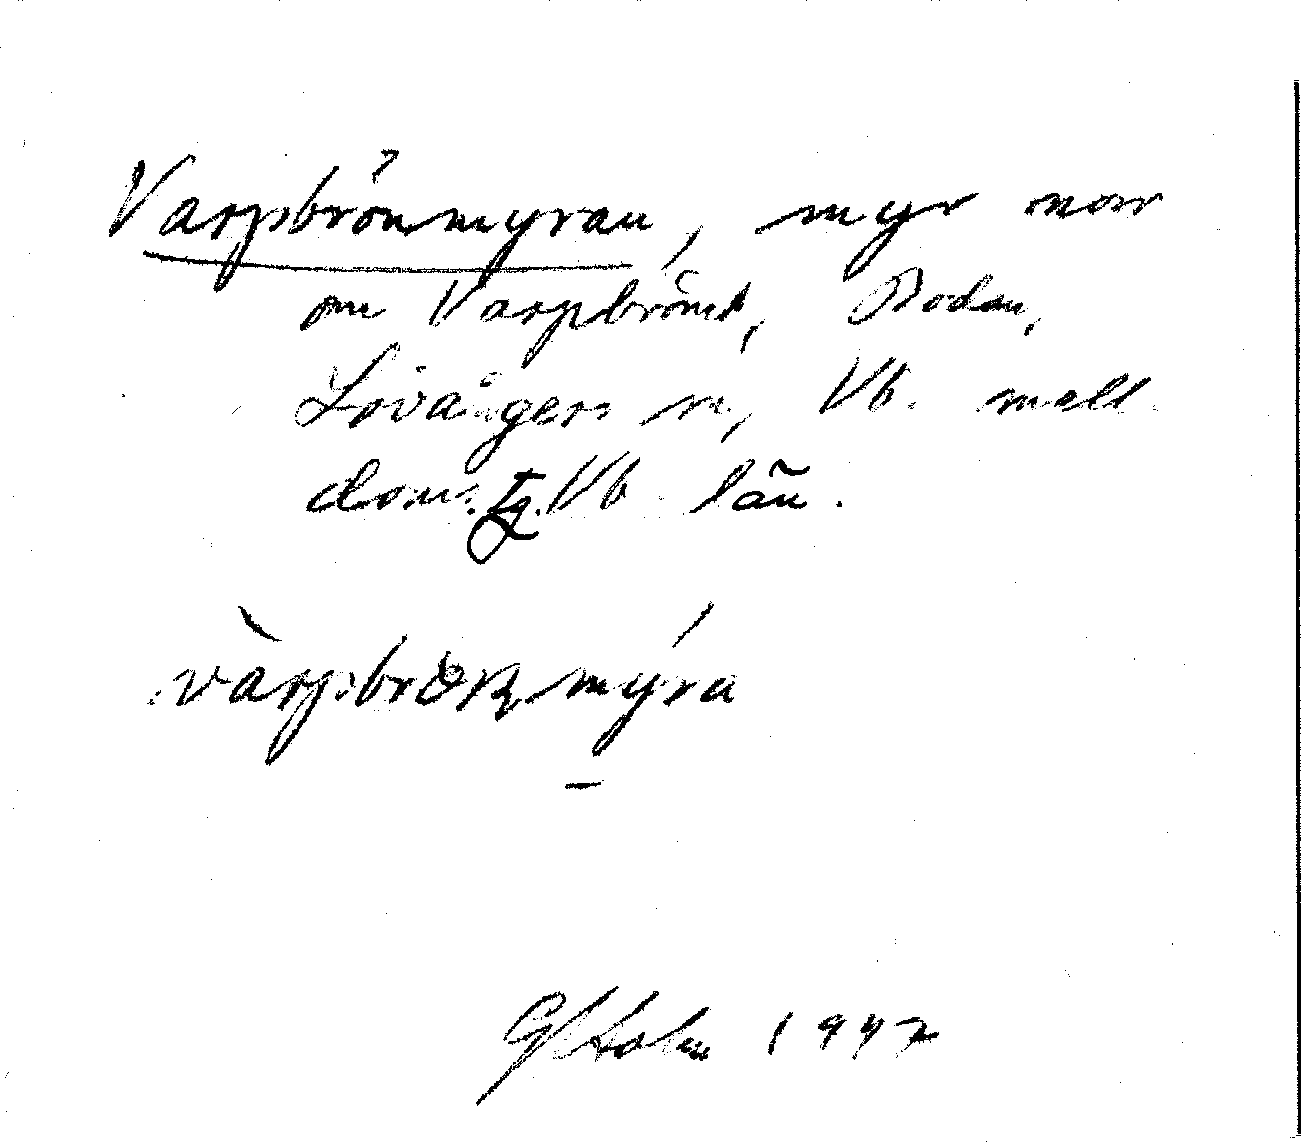 Varpbrönmyran, myr norr
om Varpbrönd, Bodan,
Lövångers sn, Vb. mell.
doms. tg. Vb län.
vàrpbrönmýra
G Holm 1947